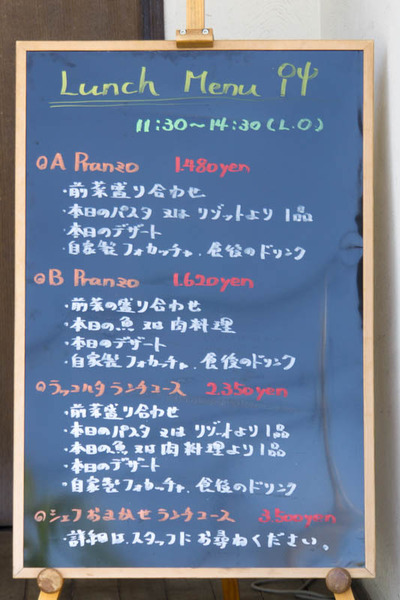 Lunch Menu
11:30〜14:30(L.O)
◎A Pranzo 1.480yen
・前菜盛り合わせ
・本日のパスタ 又は リゾットより 1品
・本日のデザート
・自家製フォカッチャ、食後のドリンク
◎B Pranzo 1.620yen
・前菜の盛り合わせ
・本日の魚 又は 肉料理
・本日のデザート
・自家製フォカッチャ、食後のドリンク
◎ラッコルタ ランチコース 2.350yen
・前菜盛り合わせ
・本日のパスタ 又は リゾットより 1品
・本日の魚 又は 肉料理より 1品
・本日のデザート
・自家製フォカッチャ、食後のドリンク
◎シェフおまかせランチコース 3.500yen
・詳細は、スタッフにお尋ねください。